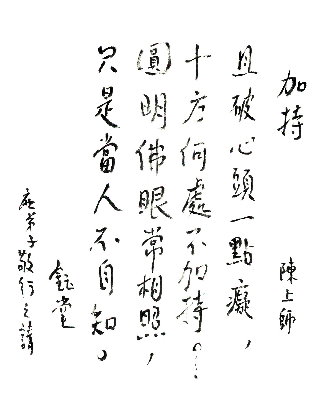 加持
陳上師
且破心頭一點癡，
十方何處不加持。
圓明佛眼常相照，
只是當人不自知。
鈺堂
應弟子敬行之請